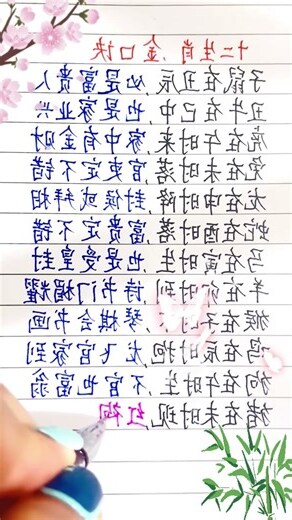 十二生肖,金口诀
子鼠在丑辰,必是富贵人
丑牛在巳中,也是家业兴
虎在午时来,家中有金财
兔在未时落,官吏定不错
龙在申时降,封候或拜相
蛇在酉时落,富贵定不错
马在寅时生,也是受皇封
羊在卯时到,诗书门楣耀
猴在子时,琴棋会书画
鸡在辰时抱,龙飞官家到
狗在午时生,不官也富翁
猪在未时现,红袍